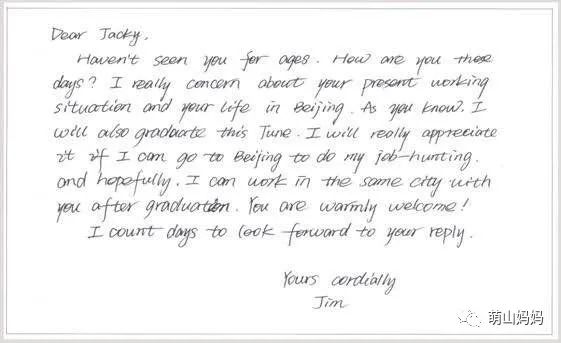 Dear Jacky,
Haven't seen you for ages. How are you those
days? I really concern about your present working
situation and your life in Beijing. As you know. I
will also graduate this June. I will really appreciate
it if I can go to Beijing to do my job-hunting.
and hopefully. I can work in the same city with
you after graduation. You are warmly welcome!
I count days to look forward to your reply.
Yours cordially
Jim
萌山妈妈